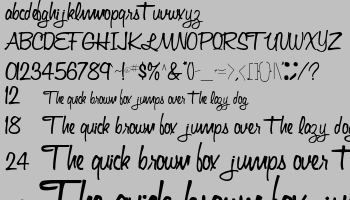 abcdefghijklmnopqrst uvwxyz
ABCDEFGHIJKLMNOPQRSTUVWXYZ
0123456789 $%^&*()-_=>,<[]{}\|":;/?
12 The quick brown fox jumps over the lazy dog
18 The quick brown fox jumps over the lazy dog
24 The quick brown fox jumps over
The quick brown fox jump